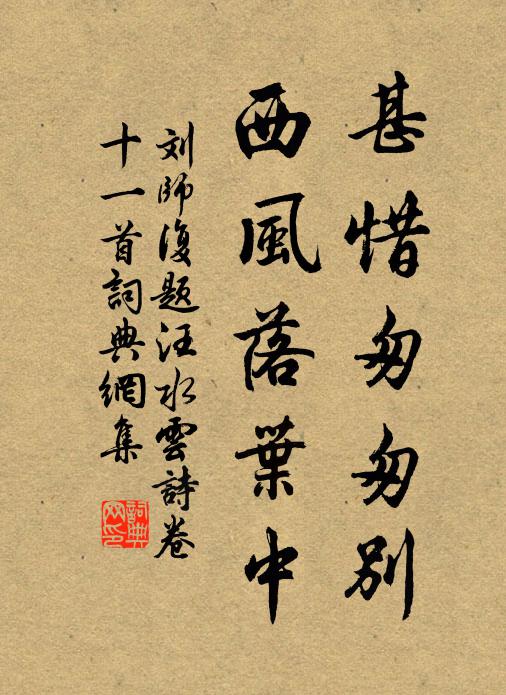 甚惜匆匆别
西風落葉中
刘師復题汪水雲詩卷
十一首詞典網集
詞典网印